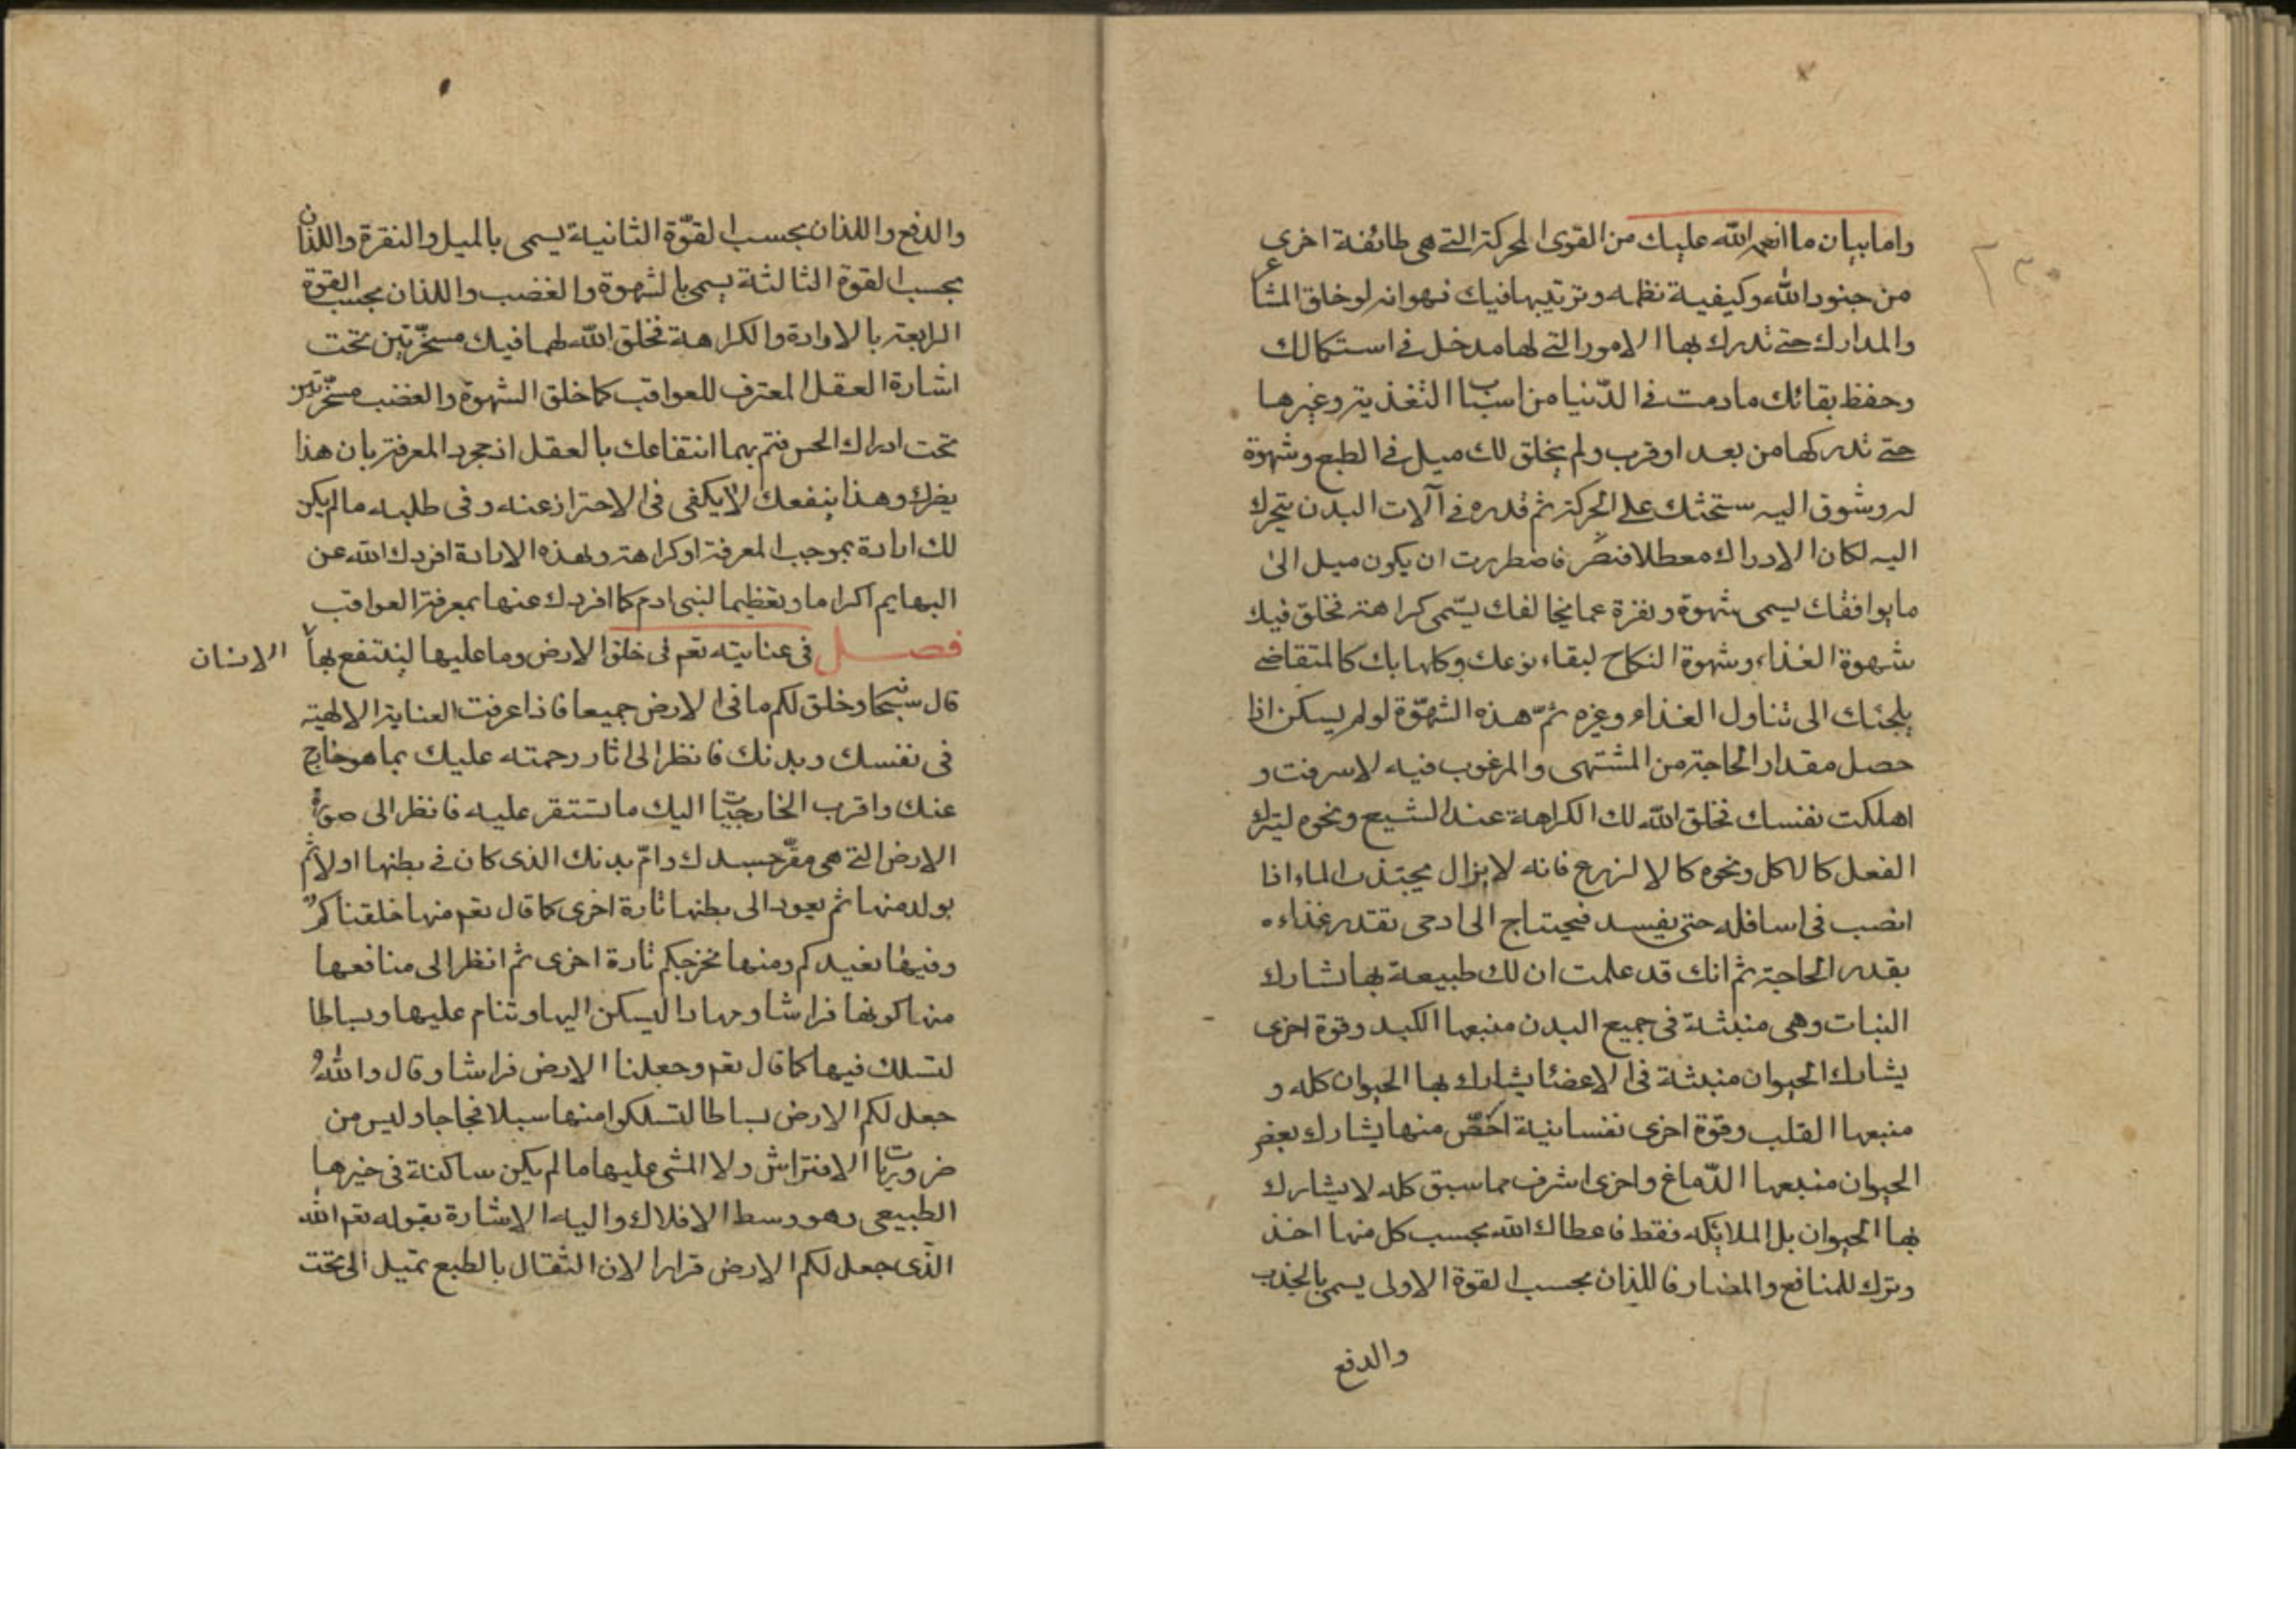 واما بيان ما انعم الله عليك من القوى المحركة التي هي طائفة اخرى
من جنود الله وكيفية نظمه وترتيبها فيك فهو انه لو خلق المشاعر
والمدارك حتى تدرك بها الامور التي لها مدخل في استكمالك
وحفظ بقائك ما دمت في الدّنيا من اسباب التغذية وغيرها
حتى تدركها من بعد او قرب ولم يخلق لك ميل في الطبع وشهوة
له وشوق اليه ستحثك على الحركة ثم قدره في آلات البدن يتحرك
اليه لكان الادراك معطلا فاضطررت ان يكون ميل الى
ما يوافقك يسمى شهوة ونفرة عما يخالفك يسّمى كراهة فخلق فيك
شهوة الغذاء وشهوة النكاح لبقاء نوعك وكلها بك كالمتقاضي
يلجئك الى تناول الغذاء وغيره ثمّ هذه الشهوّة لو لم يسكن اذا
حصل مقدار الحاجة من المشتهى والمرغوب فيه لاسرفت و
اهلكت نفسك فخلق الله لك الكراهة عند الشبع ونحوه ليترك
الفعل كالاكل ونحوه كالا لزرع فانه لا يزال يجتذب الماء اذا
انصب في اسافله حتى يفسد فيحتاج الى ادمى تقدر غذاءه
بقدر الحاجة ثم انك قد علمت ان لك طبيعة بها تشارك
النبات وهي منبثة في جميع البدن منبعها الكبد وقوة اخرى
يشارك الحيوان منبثة في الاعضا يشارك بها الحيوان كله و
منبعها القلب وقوة اخرى نفسانية اخصّ منها يشارك بعض
الحيوان منبعها الدّماغ واخرى اشرف مما سبق كله لا يشارك
بها الحيوان بل الملائكه فقط فاعطاك الله بحسب كل منها اخذ
وترك للمنافع والمضار فاللذان بحسب القوة الاولى يسمى بالجذب
والدفع
والدفع واللذان بحسب القوّة الثانية يسمى بالميل والنفرة واللذان
بحسب القوة الثالثة يسمى بالشهوة والغضب واللذان بحسب القوة
الرابعة بالارادة والكراهة فخلق الله لهما فيك مسخّرتين تحت
اشارة العقل المعترف للعواقب كما خلق الشهوة والغضب مسخّرتين
تحت ادراك الحس فتم بهما انتفاعك بالعقل اذ مجرد المعرفة بان هذا
يضرك وهذا ينفعك لا يكفى في الاحتراز عنه وفي طلبه ما لم يكن
لك ارادة بموجب المعرفة او كراهة ولهذه الارادة افردك الله عن
البهايم اكراما وتعظيما لبنى ادم كما افردك عنها بمعرفة العواقب
فصل في عنايته تعم في خلق الارض وما عليها لينتفع بها الانسان
قال سبحانه وخلق لكم ما في الارض جميعا فاذا عرفت العناية الالهية
في نفسك وبدنك فانظر الى اثار رحمته عليك بما هو خارج
عنك واقرب الخارجيات اليك ما تستقر عليه فانظر الى صورة
الارض التي هي مقرّ جسدك وامّ بدنك الذى كان في بطنها اولا ثم
يولد منها ثم يعود الى بطنها تارة اخرى كما قال تعم منها خلقناكم
وفيها نعيدكم ومنها نخرجكم تارة اخرى ثم انظر الى منافعها
منها كونها فراشا ومهادا ليسكن اليها وتنام عليها وبساطا
لتسلك فيها كما قال تعم وجعلنا الارض فراشا وقال والله
جعل لكم الارض بساطا لتسلكوا منها سبلا فجاجا وليس من
ضروريات الافتراش ولا المشى عليها ما لم يكن ساكنة في حيزها
الطبيعى وهو وسط الافلاك واليه الاشارة بقوله تعم الله
الذّى جعل لكم الارض قرارا لان الثقال بالطبع تميل الى تحت